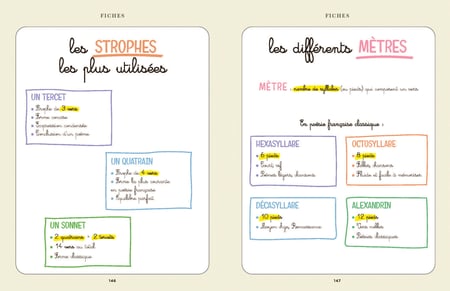 FICHES
les STROPHES
les plus utilisées
UN TERCET
• Strophe de 3 vers
• Forme concise
• Expression condensée
• Conclusion d'un poème
UN QUATRAIN
• Strophe de 4 vers
• Forme la plus courante
en poésie française
• Équilibre parfait
UN SONNET
• 2 quatrains + 2 tercets
• 14 vers au total
• Forme classique
146
FICHES
les différents MÈTRES
MÈTRE : nombre de syllabes (ou pieds) qui composent un vers
En poésie française classique :
HEXASYLLABE
• 6 pieds
• Court, vif
• Poèmes légers, chansons
OCTOSYLLABE
• 8 pieds
• Fables, chansons
• Fluide et facile à mémoriser
DÉCASYLLABE
• 10 pieds
• Moyen Âge, Renaissance
ALEXANDRIN
• 12 pieds
• Vers nobles
• Poèmes classiques
147